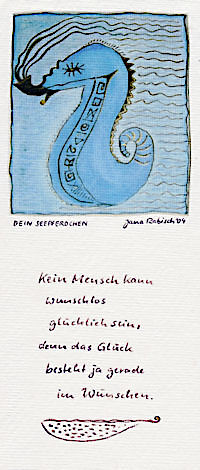 DEIN SEEPFERDCHEN
Jana Rabisch '04
Kein Mensch kann
wunschlos
glücklich sein,
denn das Glück
besteht ja gerade
im Wünschen.